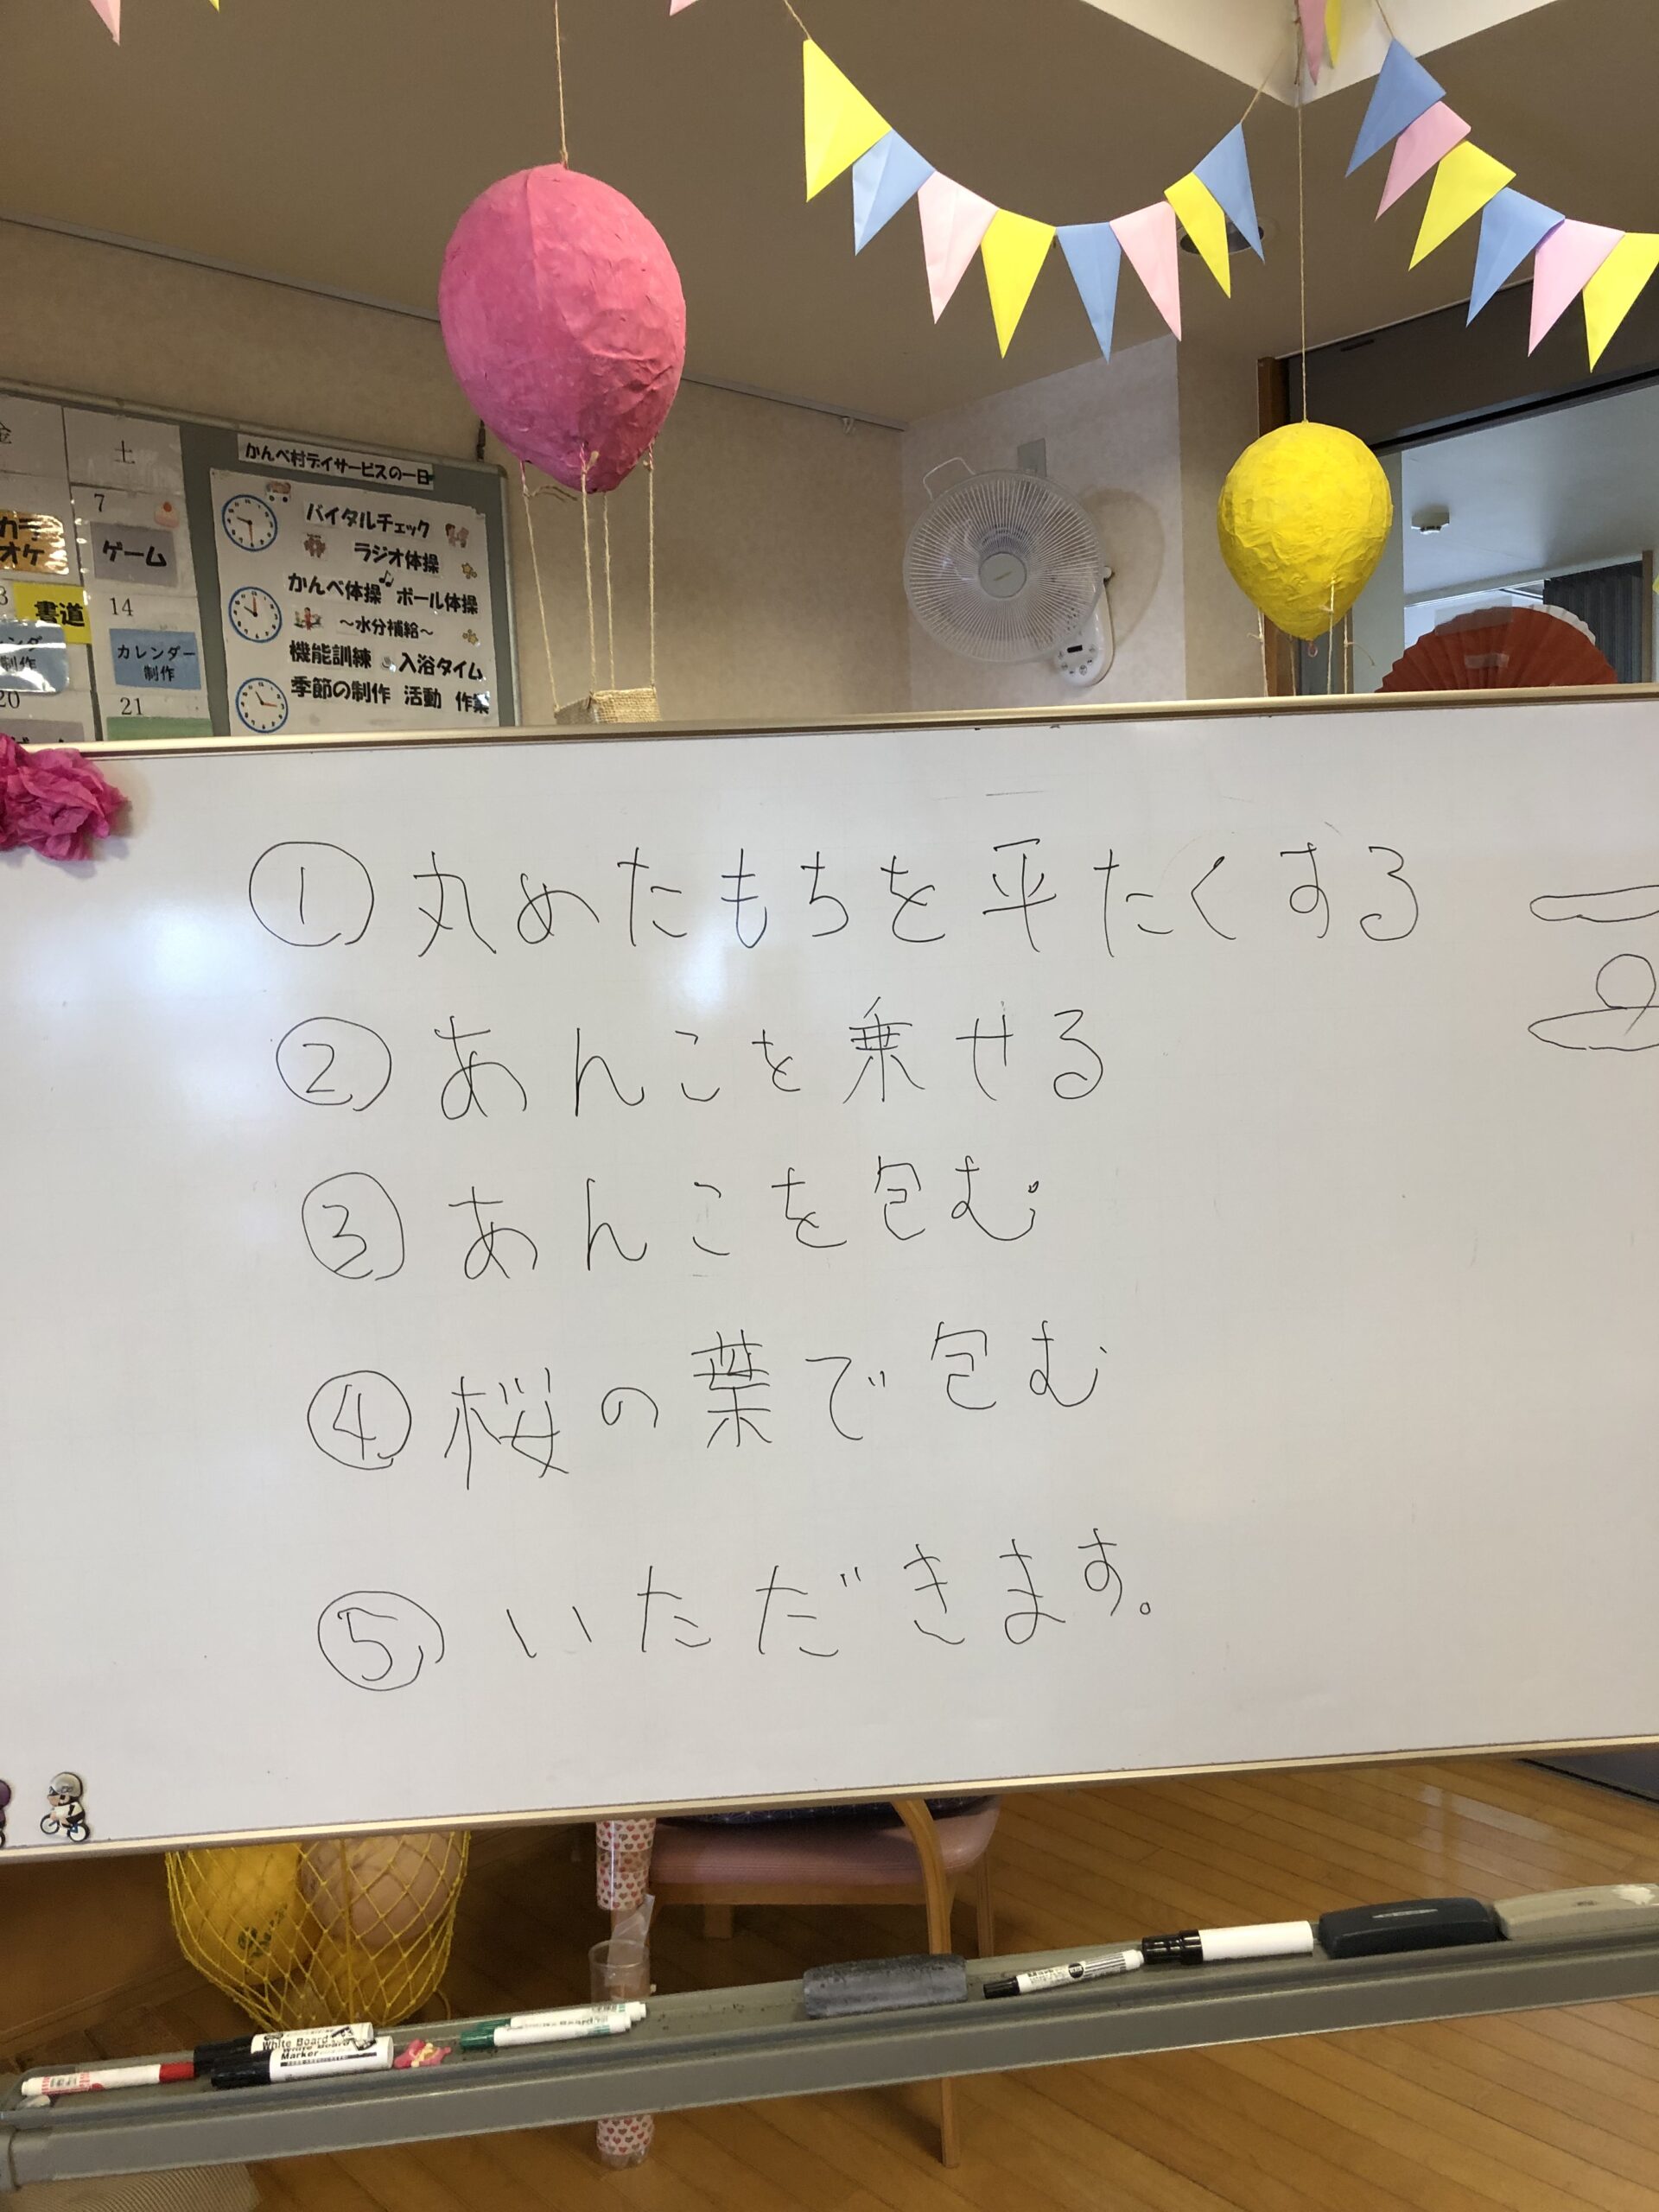 金
土
7
カラオケ
ゲーム
書道
14
カレンダー
制作
制作
20
21
かんべ村デイサービスの一日
バイタルチェック
ラジオ体操
かんべ体操 ボール体操
～水分補給～
機能訓練 入浴タイム
季節の制作 活動 作業
① 丸めたもちを平たくする
② あんこを乗せる
③ あんこを包む
④ 桜の葉で包む
⑤ いただきます。
White Board
White Board
Marker